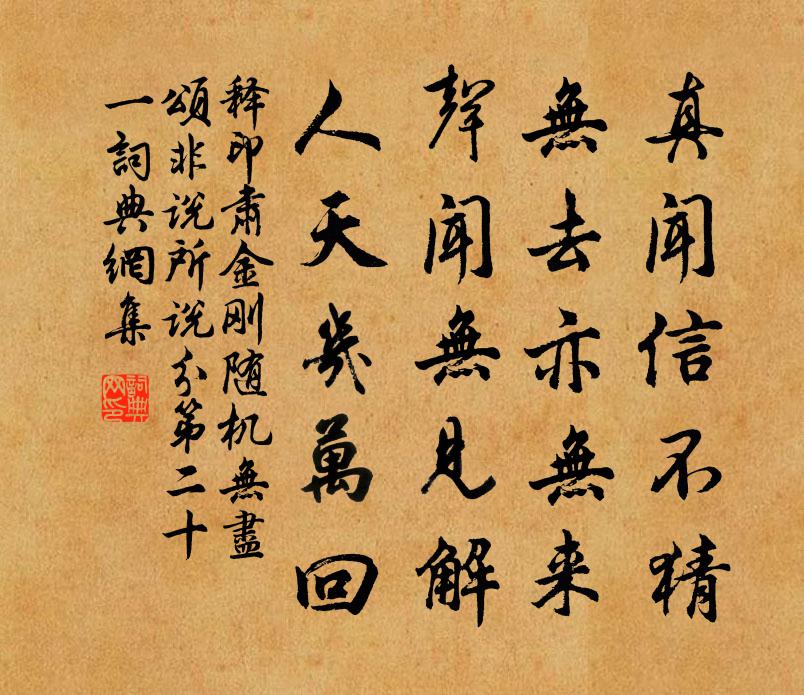 真闻信不猜
無去亦無来
聲闻無見解
人天幾萬回
释印肃金刚随机無盡
颂非说所说分第二十
一詞典網集
詞典網印